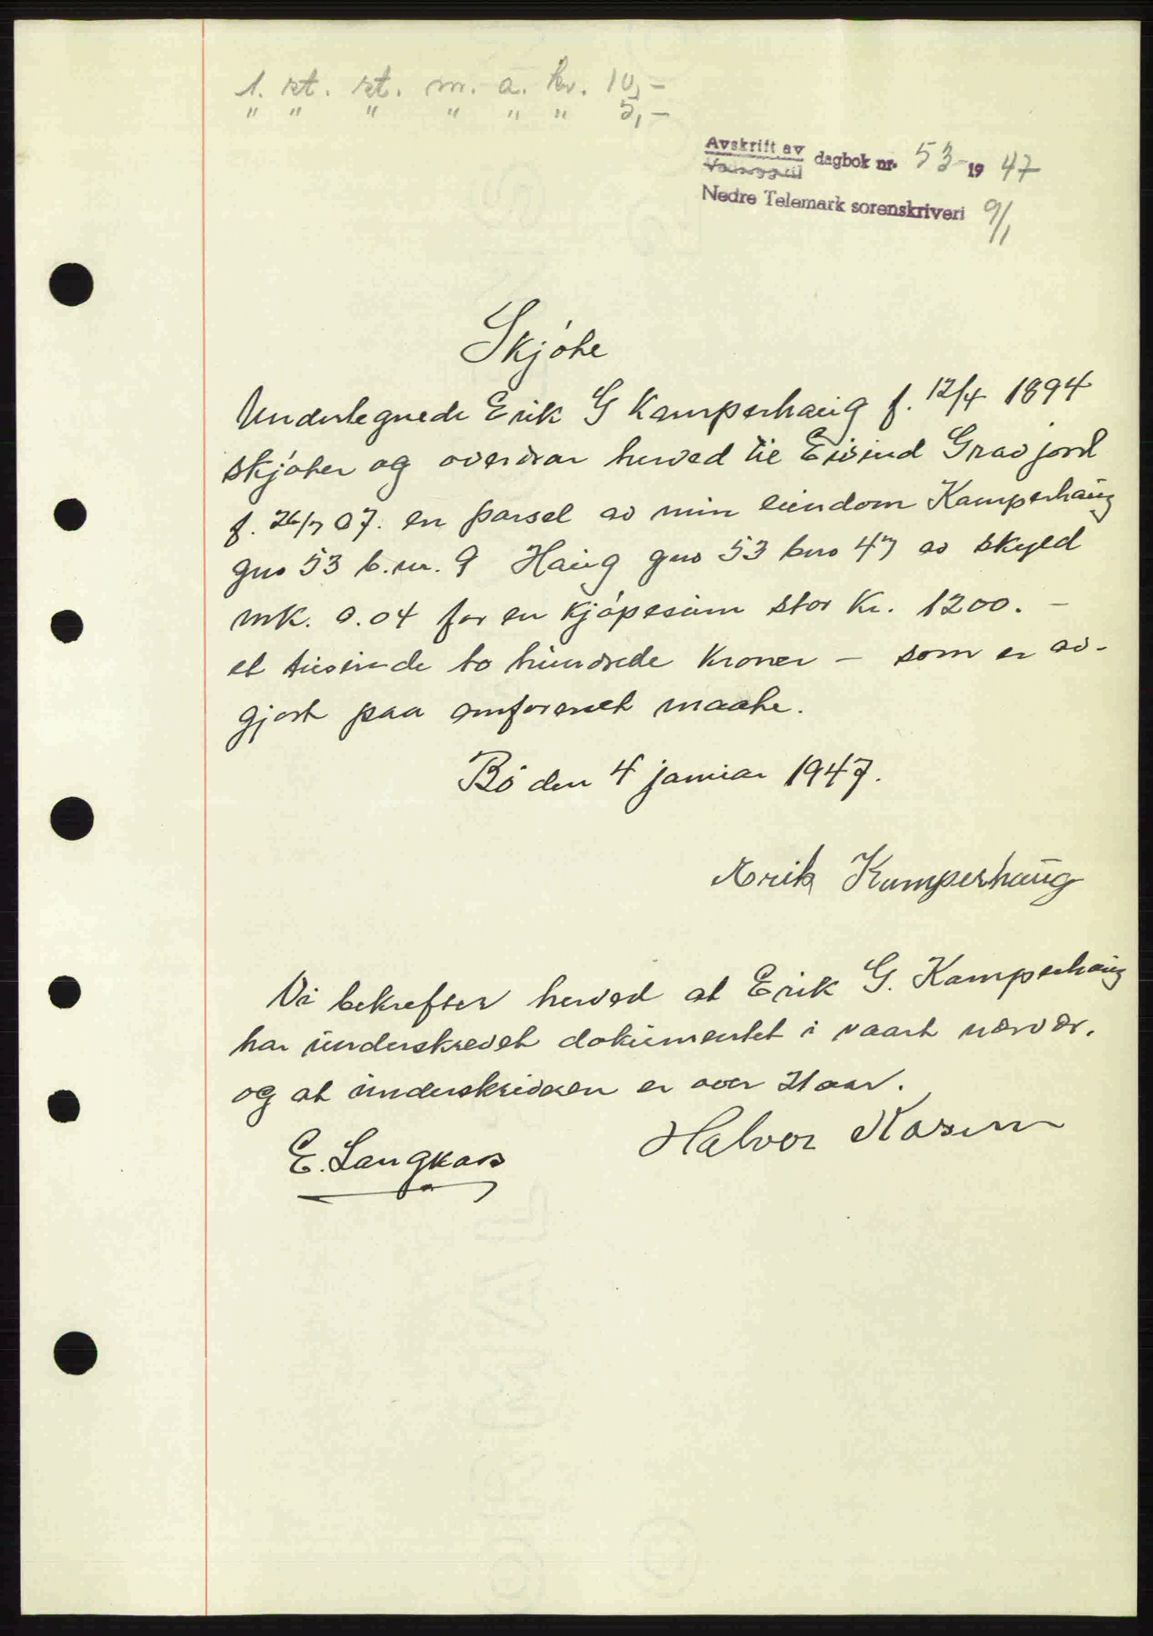 1. st. st. m. a. kr. 10,-
" " " " " " 5,-
Avskrift av
Vedlegg til dagbok nr. 53-1947
Nedre Telemark sorenskriveri 9/1
Skjøte
Undertegnede Erik G Kamperhaug f. 12/4 1894
skjøter og overdrar herved til Eivind Gravjord
f. 26/7 07. en parsel av min eiendom Kamperhaug
gno 53 b.nr. 9 Haug gno 53 bno 47 av skyld
mk. 0.04 for en kjøpesum stor kr. 1200.-
et tusinde to hundrede kroner - som er av-
gjort paa omforenet maate.
Bø den 4 januar 1947.
Erik Kamperhaug
Vi bekrefter herved at Erik G. Kamperhaug
har underskrevet dokumentet i vaart nærvær.
og at underskriveren er over 21 aar.
E. Langkaas
Halvor